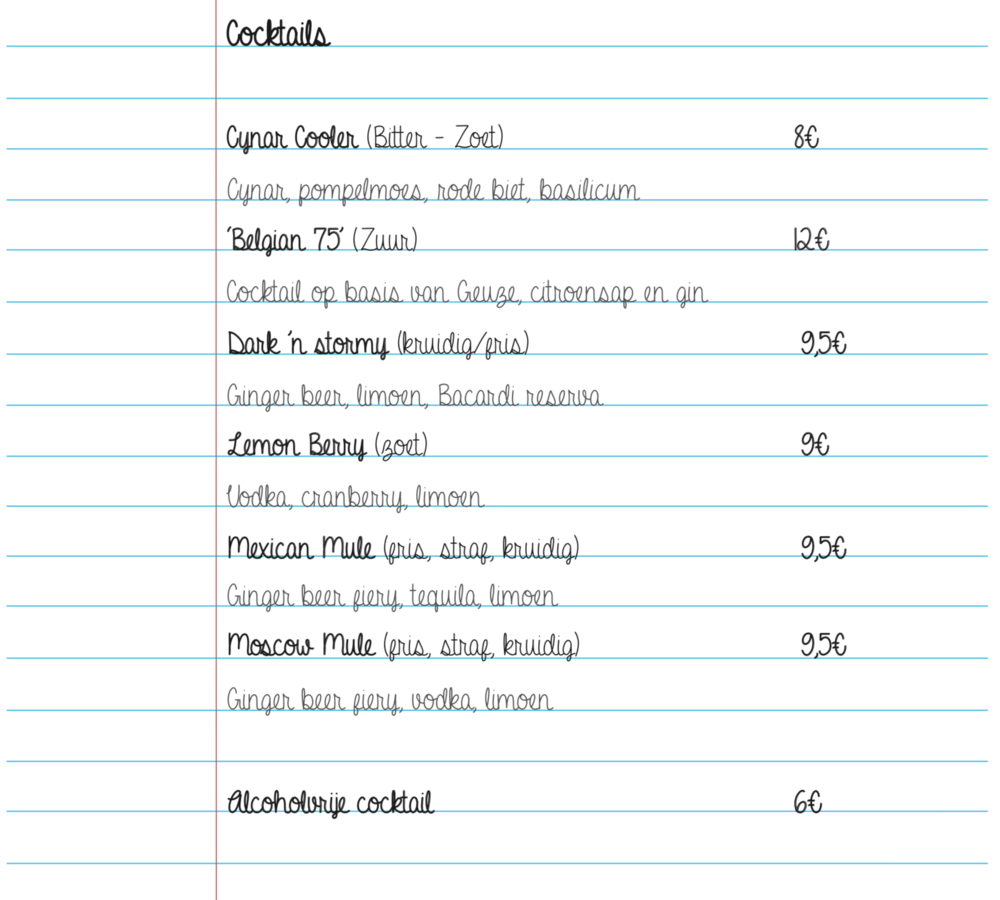 Cocktails
Cynar Cooler (Bitter - Zoet) 8€
Cynar, pompelmoes, rode biet, basilicum
'Belgian 75' (Zuur) 12€
Cocktail op basis van Geuze, citroensap en gin
Dark 'n stormy (kruidig/fris) 9,5€
Ginger beer, limoen, Bacardi reserva
Lemon Berry (zoet) 9€
Vodka, cranberry, limoen
Mexican Mule (fris, straf, kruidig) 9,5€
Ginger beer fiery, tequila, limoen
Moscow Mule (fris, straf, kruidig) 9,5€
Ginger beer fiery, vodka, limoen
Alcoholvrije cocktail 6€